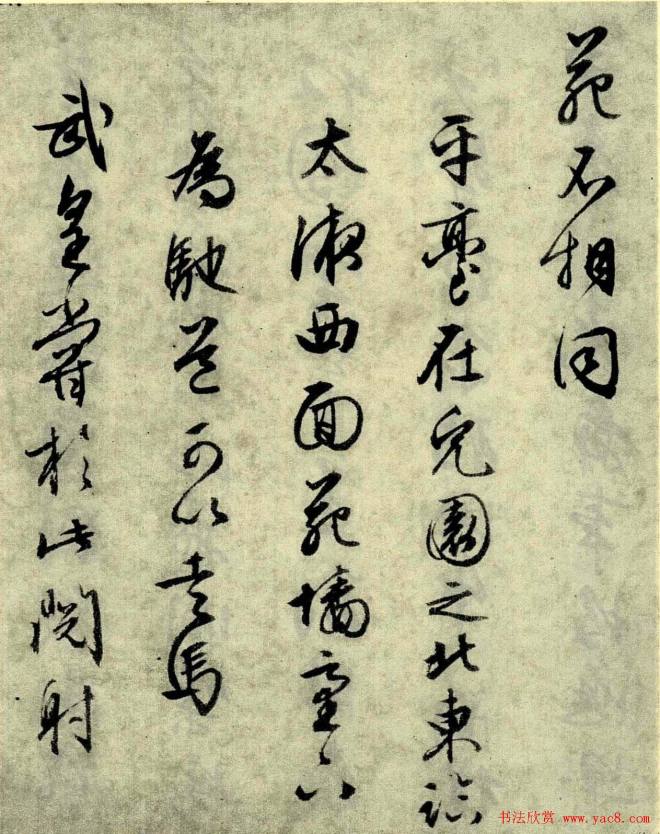 苑不相同
平臺在兔園之北東臨
太液西面苑墻臺下
為馳道可以走馬
武皇嘗於此閱射
书法欣赏 www.yac8.com